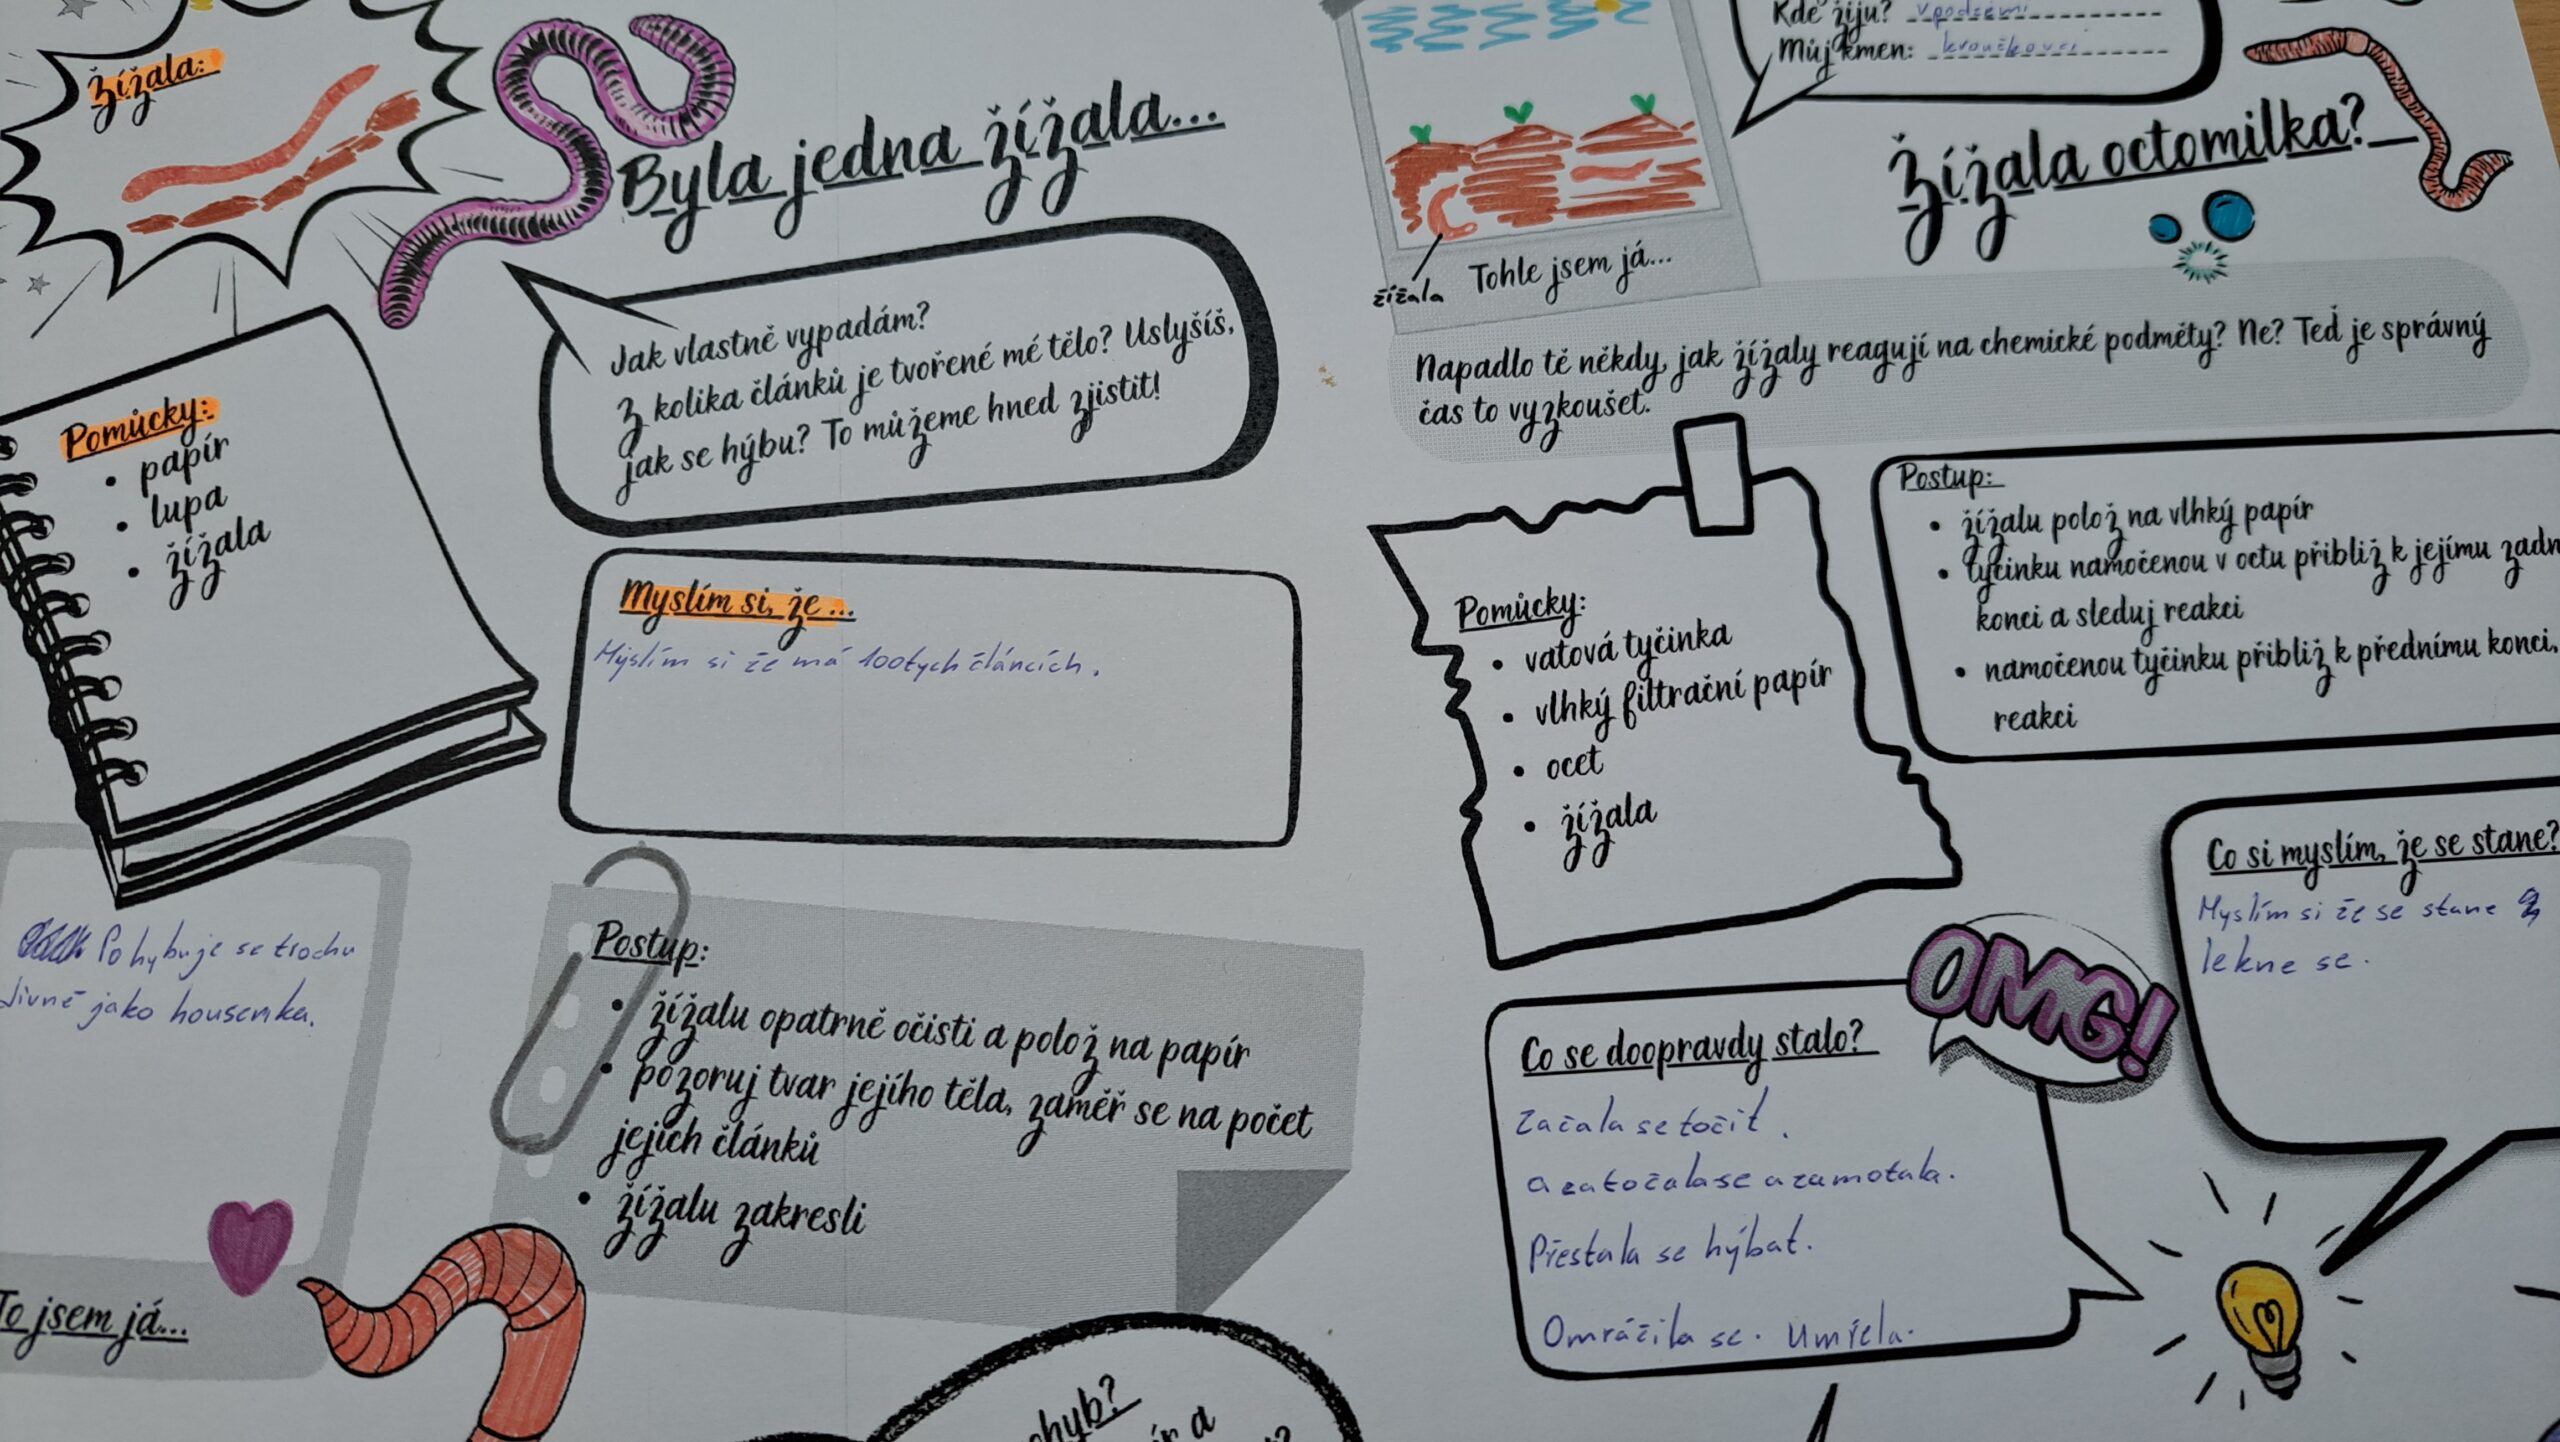 Žížala:
Byla jedna žížala...
Jak vlastně vypadám?
Z kolika článků je tvořené mé tělo? Uslyšíš,
jak se hýbu? To můžeme hned zjistit!
Pomůcky:
• papír
• lupa
• žížala
Myslím si, že ...
Myslím si že má 100tych článcích.
Pohybuje se trochu
divně jako housenka.
To jsem já...
Postup:
• žížalu opatrně očisti a polož na papír
• pozoruj tvar jejího těla, zaměř se na počet
jejich článků
• žížalu zakresli
ohyb?
Kde žiju? v podzemí
Můj kmen: kroužkovci
žížala
Tohle jsem já...
Žížala octomilka?
Napadlo tě někdy, jak žížaly reagují na chemické podměty? Ne? Teď je správný
čas to vyzkoušet.
Pomůcky:
• vatová tyčinka
• vlhký filtrační papír
• ocet
• žížala
Postup:
• žížalu polož na vlhký papír
• tyčinku namočenou v octu přibliž k jejímu zadn
konci a sleduj reakci
• namočenou tyčinku přibliž k přednímu konci,
reakci
Co si myslím, že se stane?
Myslím si že se stane
lekne se.
OMG!
Co se doopravdy stalo?
Začala se točit.
a zatočala se a zamotala.
Přestala se hýbat.
Omráčila se. Umřela.